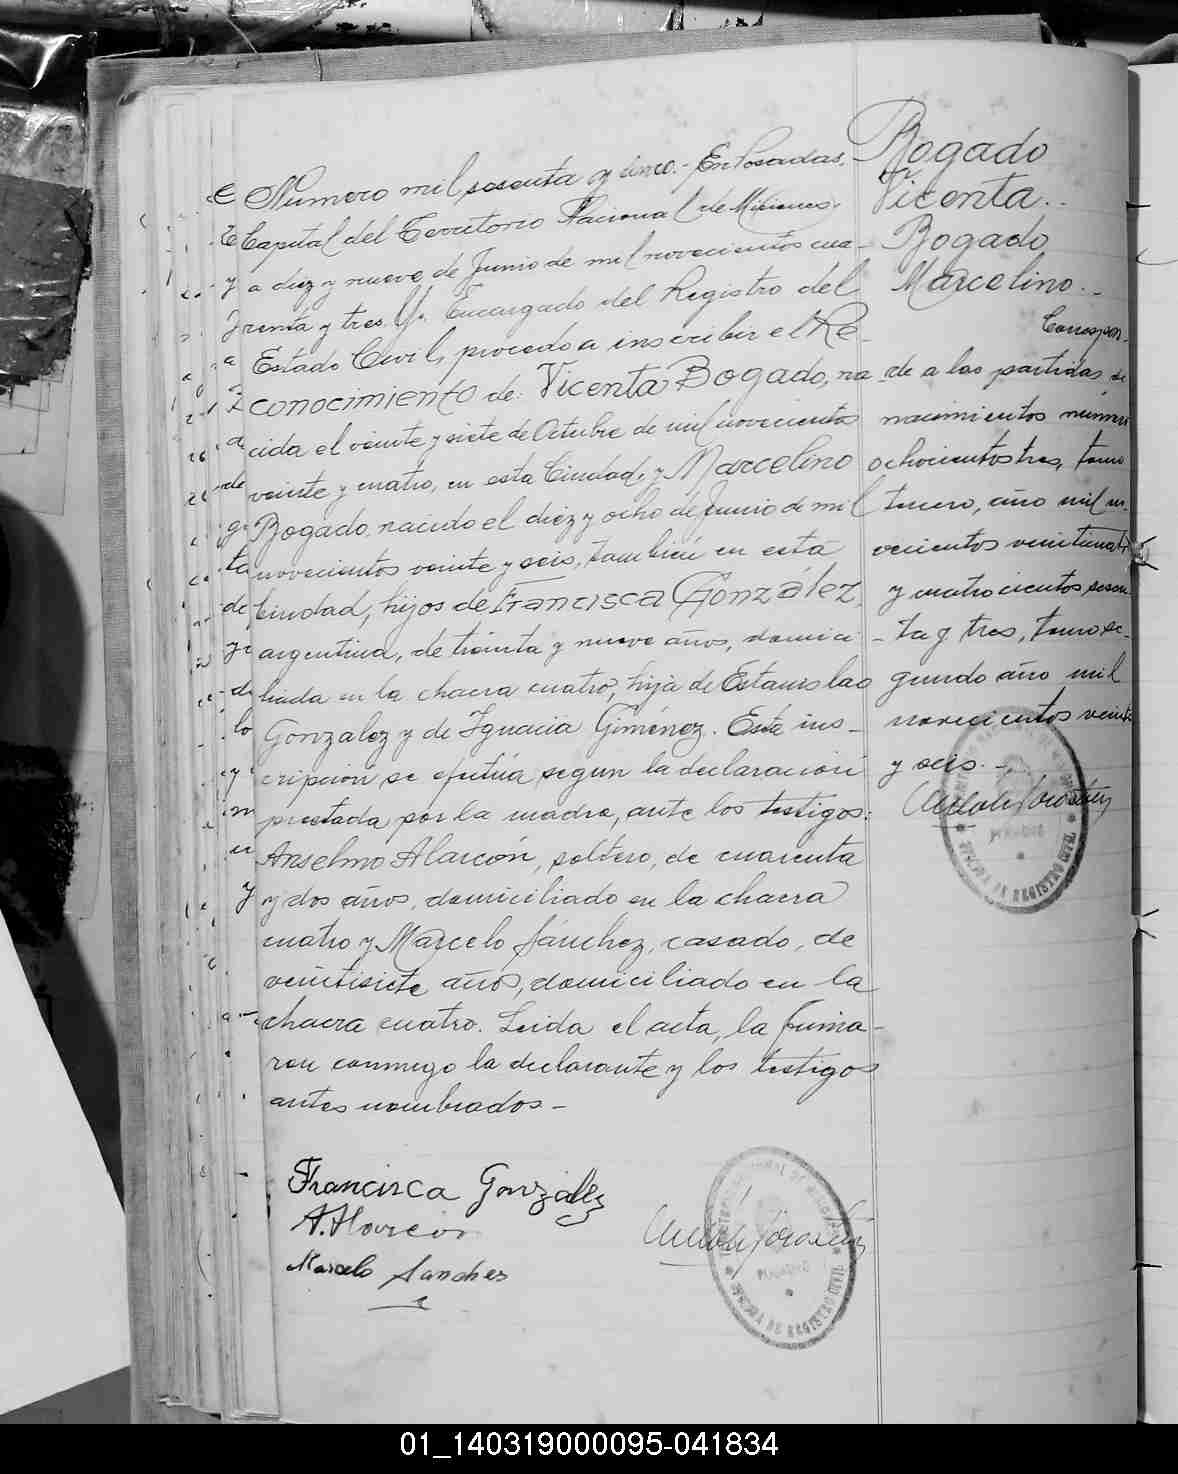 Numero mil sesenta y cinco.- En Posadas,
Capital del Territorio Nacional de Misiones,
a diez y nueve de Junio de mil novecientos cua-
renta y tres. Yo, Encargado del Registro del
Estado Civil, procedo a inscribir el Re-
conocimiento de: Vicenta Bogado, na-
cida el veinte y siete de Octubre de mil novecientos
veinte y cuatro, en esta Ciudad, y Marcelino
Bogado, nacido el diez y ocho de Junio de mil
novecientos veinte y seis, tambien en esta
Ciudad, hijos de Francisca González,
argentina, de treinta y nueve años, domici-
liada en la chacra cuatro, hija de Estanislao
Gonzalez y de Ignacia Giménez. Esta ins-
cripcion se efectúa segun la declaración
prestada por la madre, ante los testigos:
Anselmo Alarcón, soltero, de cuarenta
y dos años, domiciliado en la chacra
cuatro y Marcelo Sánchez, casado, de
veintisiete años, domiciliado en la
chacra cuatro. Leida el acta, la firma-
ron conmigo la declarante y los testigos
antes nombrados-
Francisca González
A. Alarcón
Marcelo Sanches
Bogado
Vicenta..
Bogado
Marcelino.-
Correspon-
de a las partidas de
nacimientos número
ochocientos tres, tomo
tercero, año mil no-
vecientos veinticuatro
y cuatrocientos sesen-
ta y tres, tomo se-
gundo año mil
novecientos veinte
y seis.-
POSADAS
OFICINA DE REGISTRO CIVIL
POSADAS
OFICINA DE REGISTRO CIVIL
01_140319000095-041834